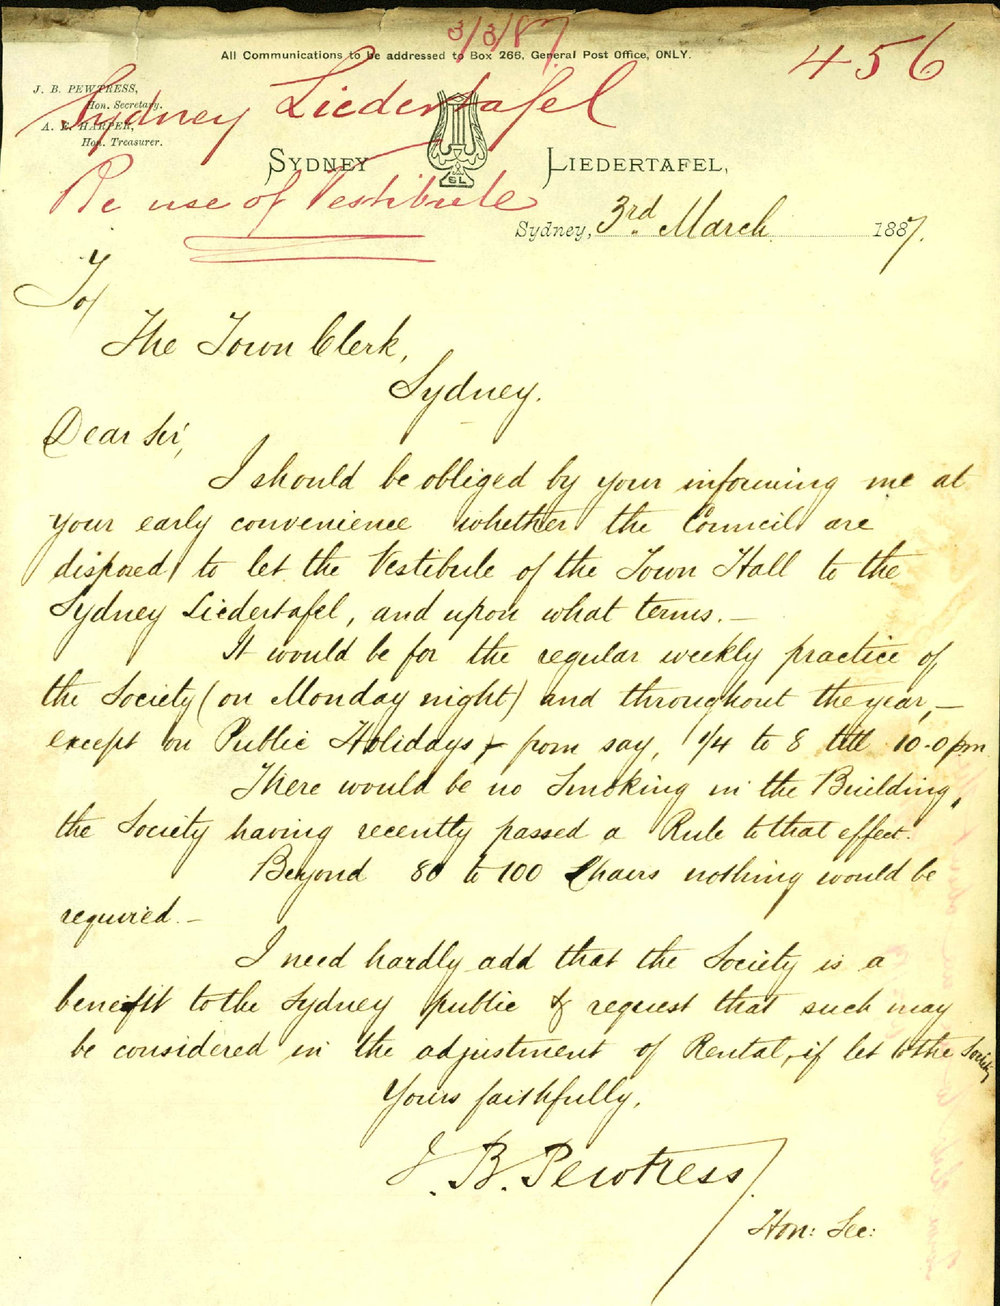 3/3/87
All Communications to be addressed to Box 266, General Post Office, ONLY.
456
J. B. PEWTRESS,
Hon. Secretary.
A. E. HARPER,
Hon. Treasurer.
Sydney Liedertafel
SYDNEY LIEDERTAFEL,
SL
Re use of Vestibule
Sydney, 3rd. March 1887.
To/
The Town Clerk,
Sydney.
Dear Sir,
I should be obliged by your informing me at
your early convenience whether the Council are
disposed to let the Vestibule of the Town Hall to the
Sydney Liedertafel, and upon what terms. —
It would be for the regular weekly practice of
the Society (on Monday night) and throughout the year, —
except on Public Holidays, from say, 1/4 to 8 till 10-0 pm
There would be no Smoking in the Building,
the Society having recently passed a Rule to that effect.
Beyond 80 to 100 Chairs nothing would be
required. —
I need hardly add that the Society is a
benefit to the Sydney public & request that such may
be considered in the adjustment of Rental, if let to the Society
Yours faithfully,
J. B. Pewtress
Hon: Sec: